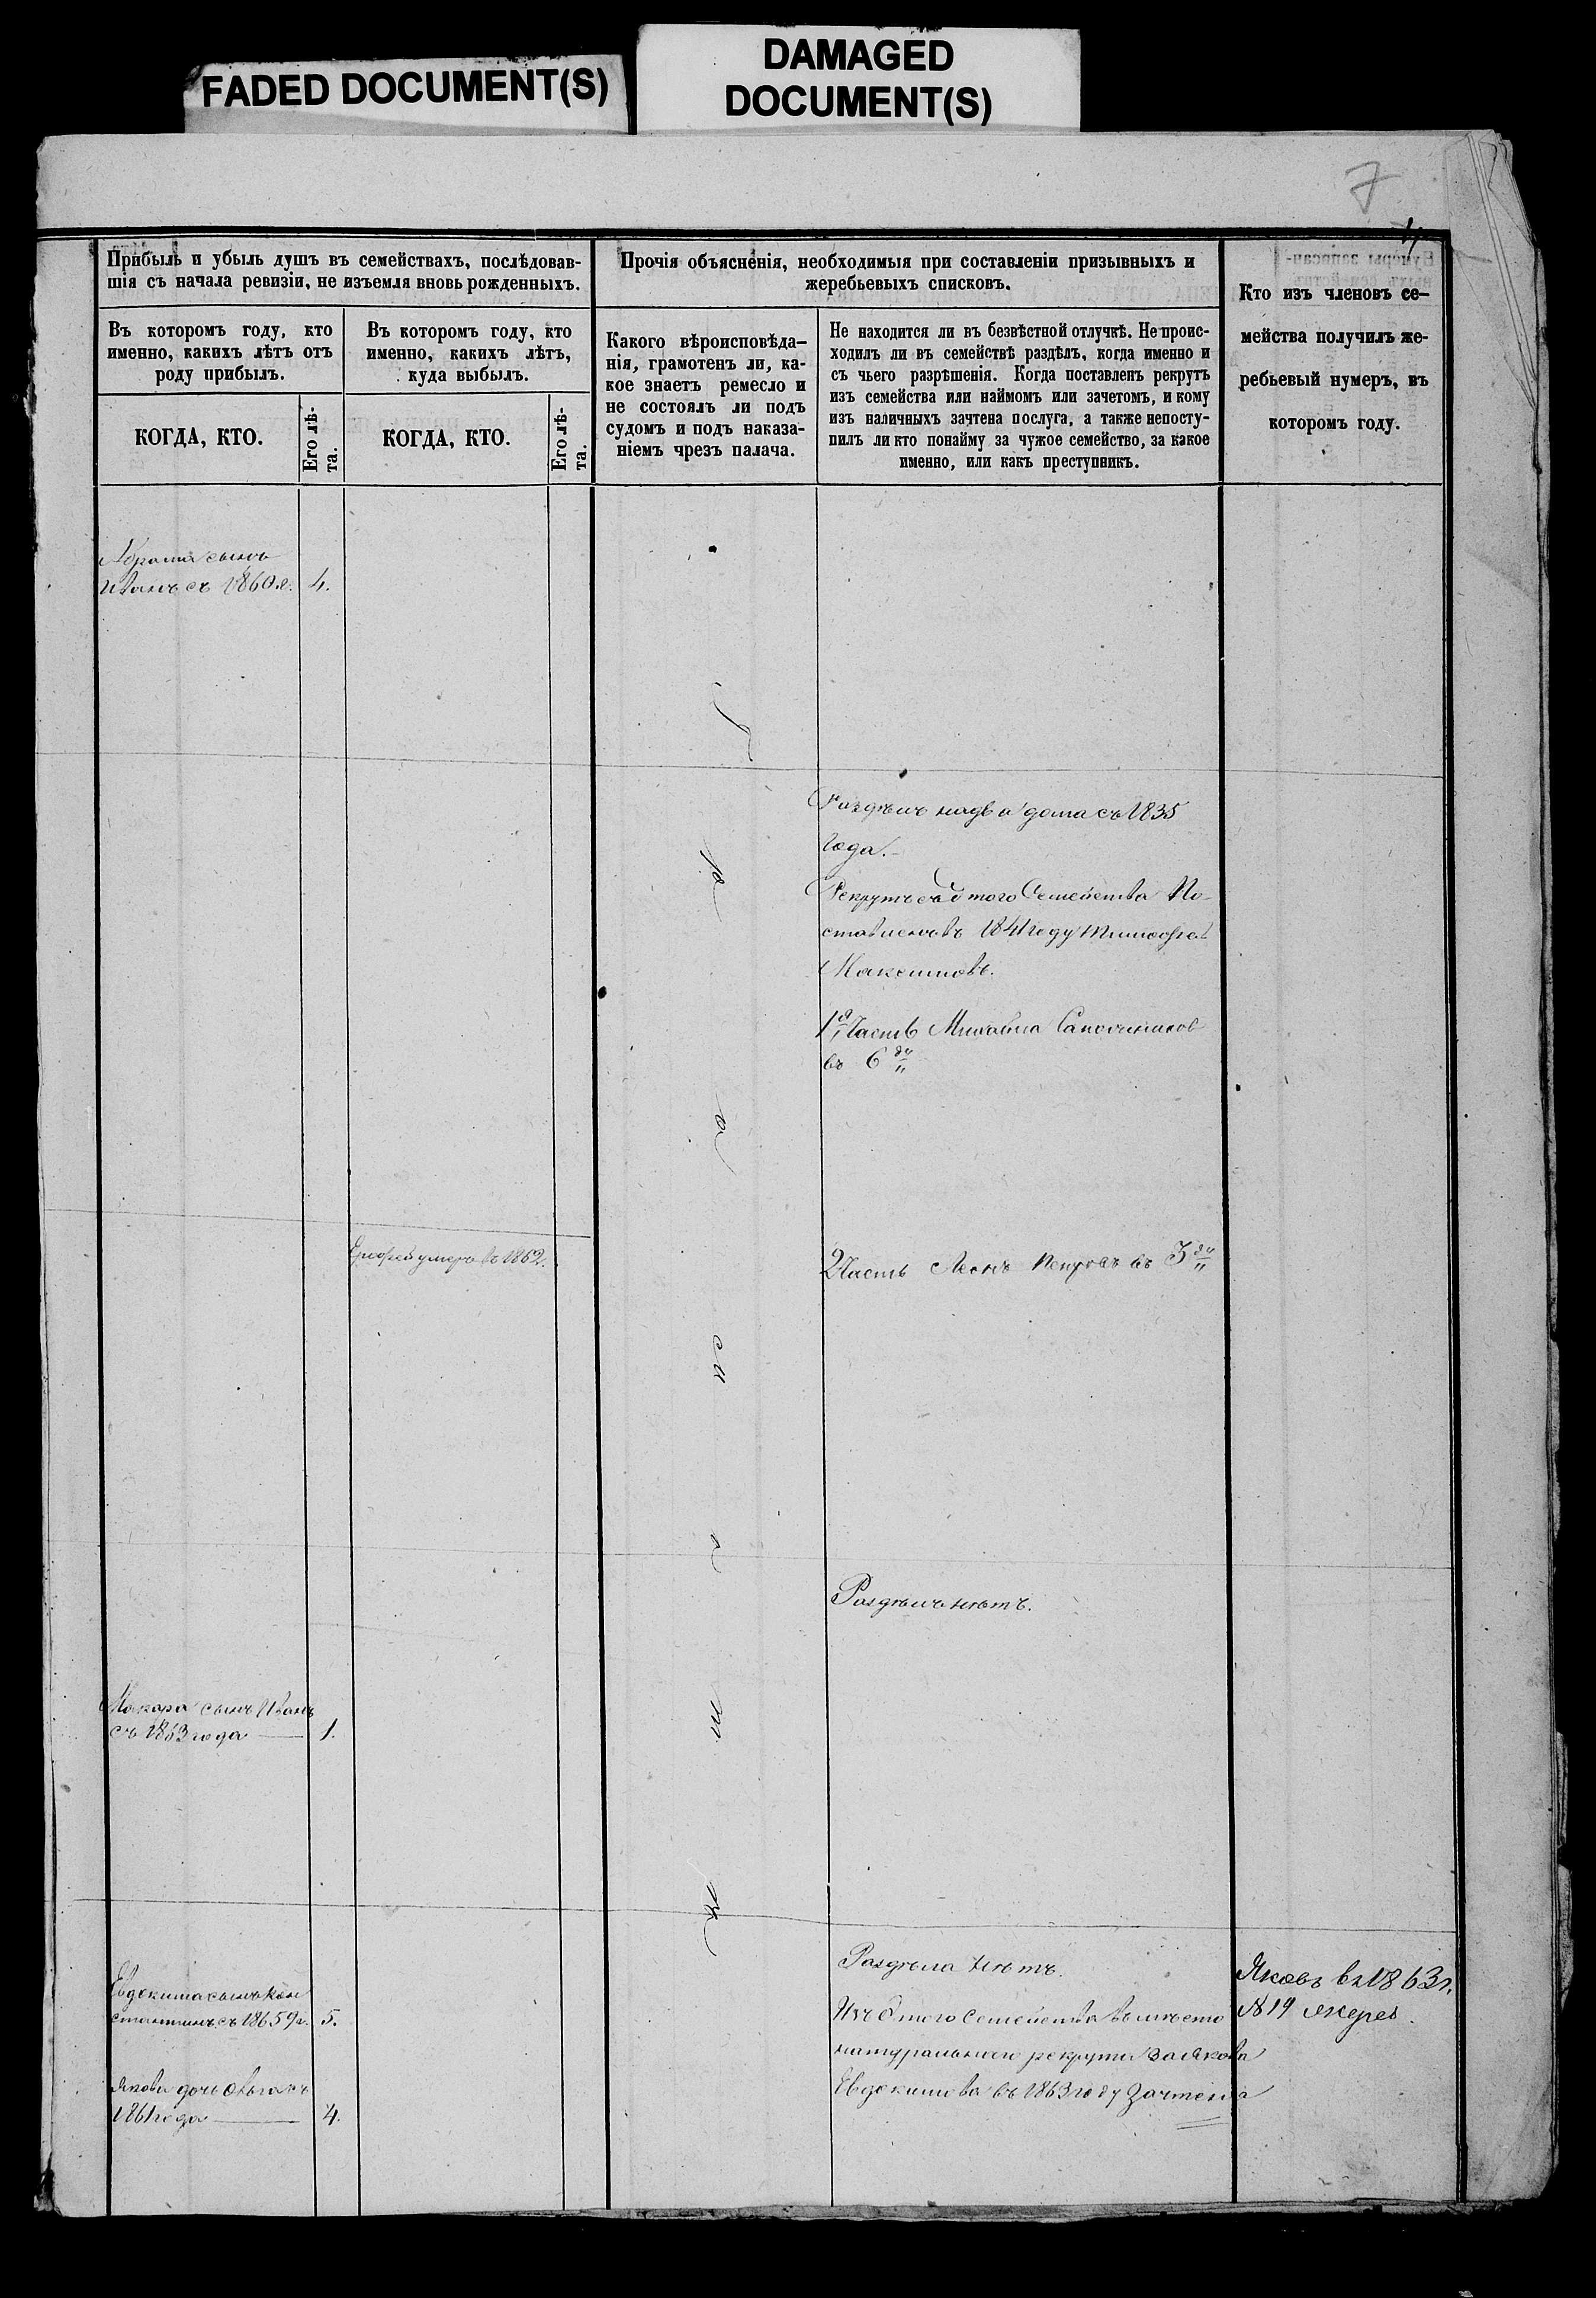 FADED DOCUMENT(S)
DAMAGED
DOCUMENT(S)
7
Прибыль и убыль душъ въ семействахъ, послѣдовав-
шія съ начала ревизіи, не изъемля вновь рожденныхъ.
Въ которомъ году, кто
именно, какихъ лѣтъ отъ
роду прибылъ.
КОГДА, КТО.
Его лѣ-
та.
Въ которомъ году, кто
именно, какихъ лѣтъ,
куда выбылъ.
КОГДА, КТО.
Его лѣ-
та.
Прочія объясненія, необходимыя при составленіи призывныхъ и
жеребьевыхъ списковъ.
Какого вѣроисповѣда-
нія, грамотенъ ли, ка-
кое знаетъ ремесло и
не состоялъ ли подъ
судомъ и подъ наказа-
ніемъ чрезъ палача.
Не находится ли въ безвѣстной отлучкѣ. Не проис-
ходилъ ли въ семействѣ раздѣлъ, когда именно и
съ чьего разрѣшенія. Когда поставленъ рекрутъ
изъ семейства или наймомъ или зачетомъ, и кому
изъ наличныхъ зачтена послуга, а также непосту-
пилъ ли кто понайму за чужое семейство, за какое
именно, или какъ преступникъ.
Кто изъ членовъ се-
мейства получилъ же-
ребьевый нумеръ, въ
которомъ году.
сынъ
Иванъ съ 1860 г. 4.
Раздѣлъ на два дома съ 1835
года.
Рекрутъ съ этого Семейства По-
ставленъ въ 1841 году Тимофей
Максимовъ.
1я Часть Михаила
въ 6 ду
Ерофей умеръ въ 1862.
2 Часть Леонъ Петровъ въ 3 ду
Раздѣлъ нѣтъ.
Макара сынъ Иванъ
съ 1863 года 1.
Раздѣла нѣтъ.
Изъ этого Семейства вмѣсто
натуральной рекрута за Якова
Евдокимова въ 1863 году Зачтена
Яковъ въ 1863 г.
№ 19 жереб.
Евдокима сынъ Кон
стантинъ съ 18659 г. 5.
Якова дочь
1861 года 4.